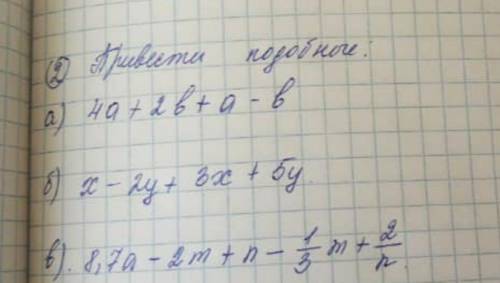 ② Привести подобные:
а) 4a + 2b + a - b
б) x - 2y + 3x + 5y.
в). 8,7a - 2m + n - 1/3 m + 2/n.